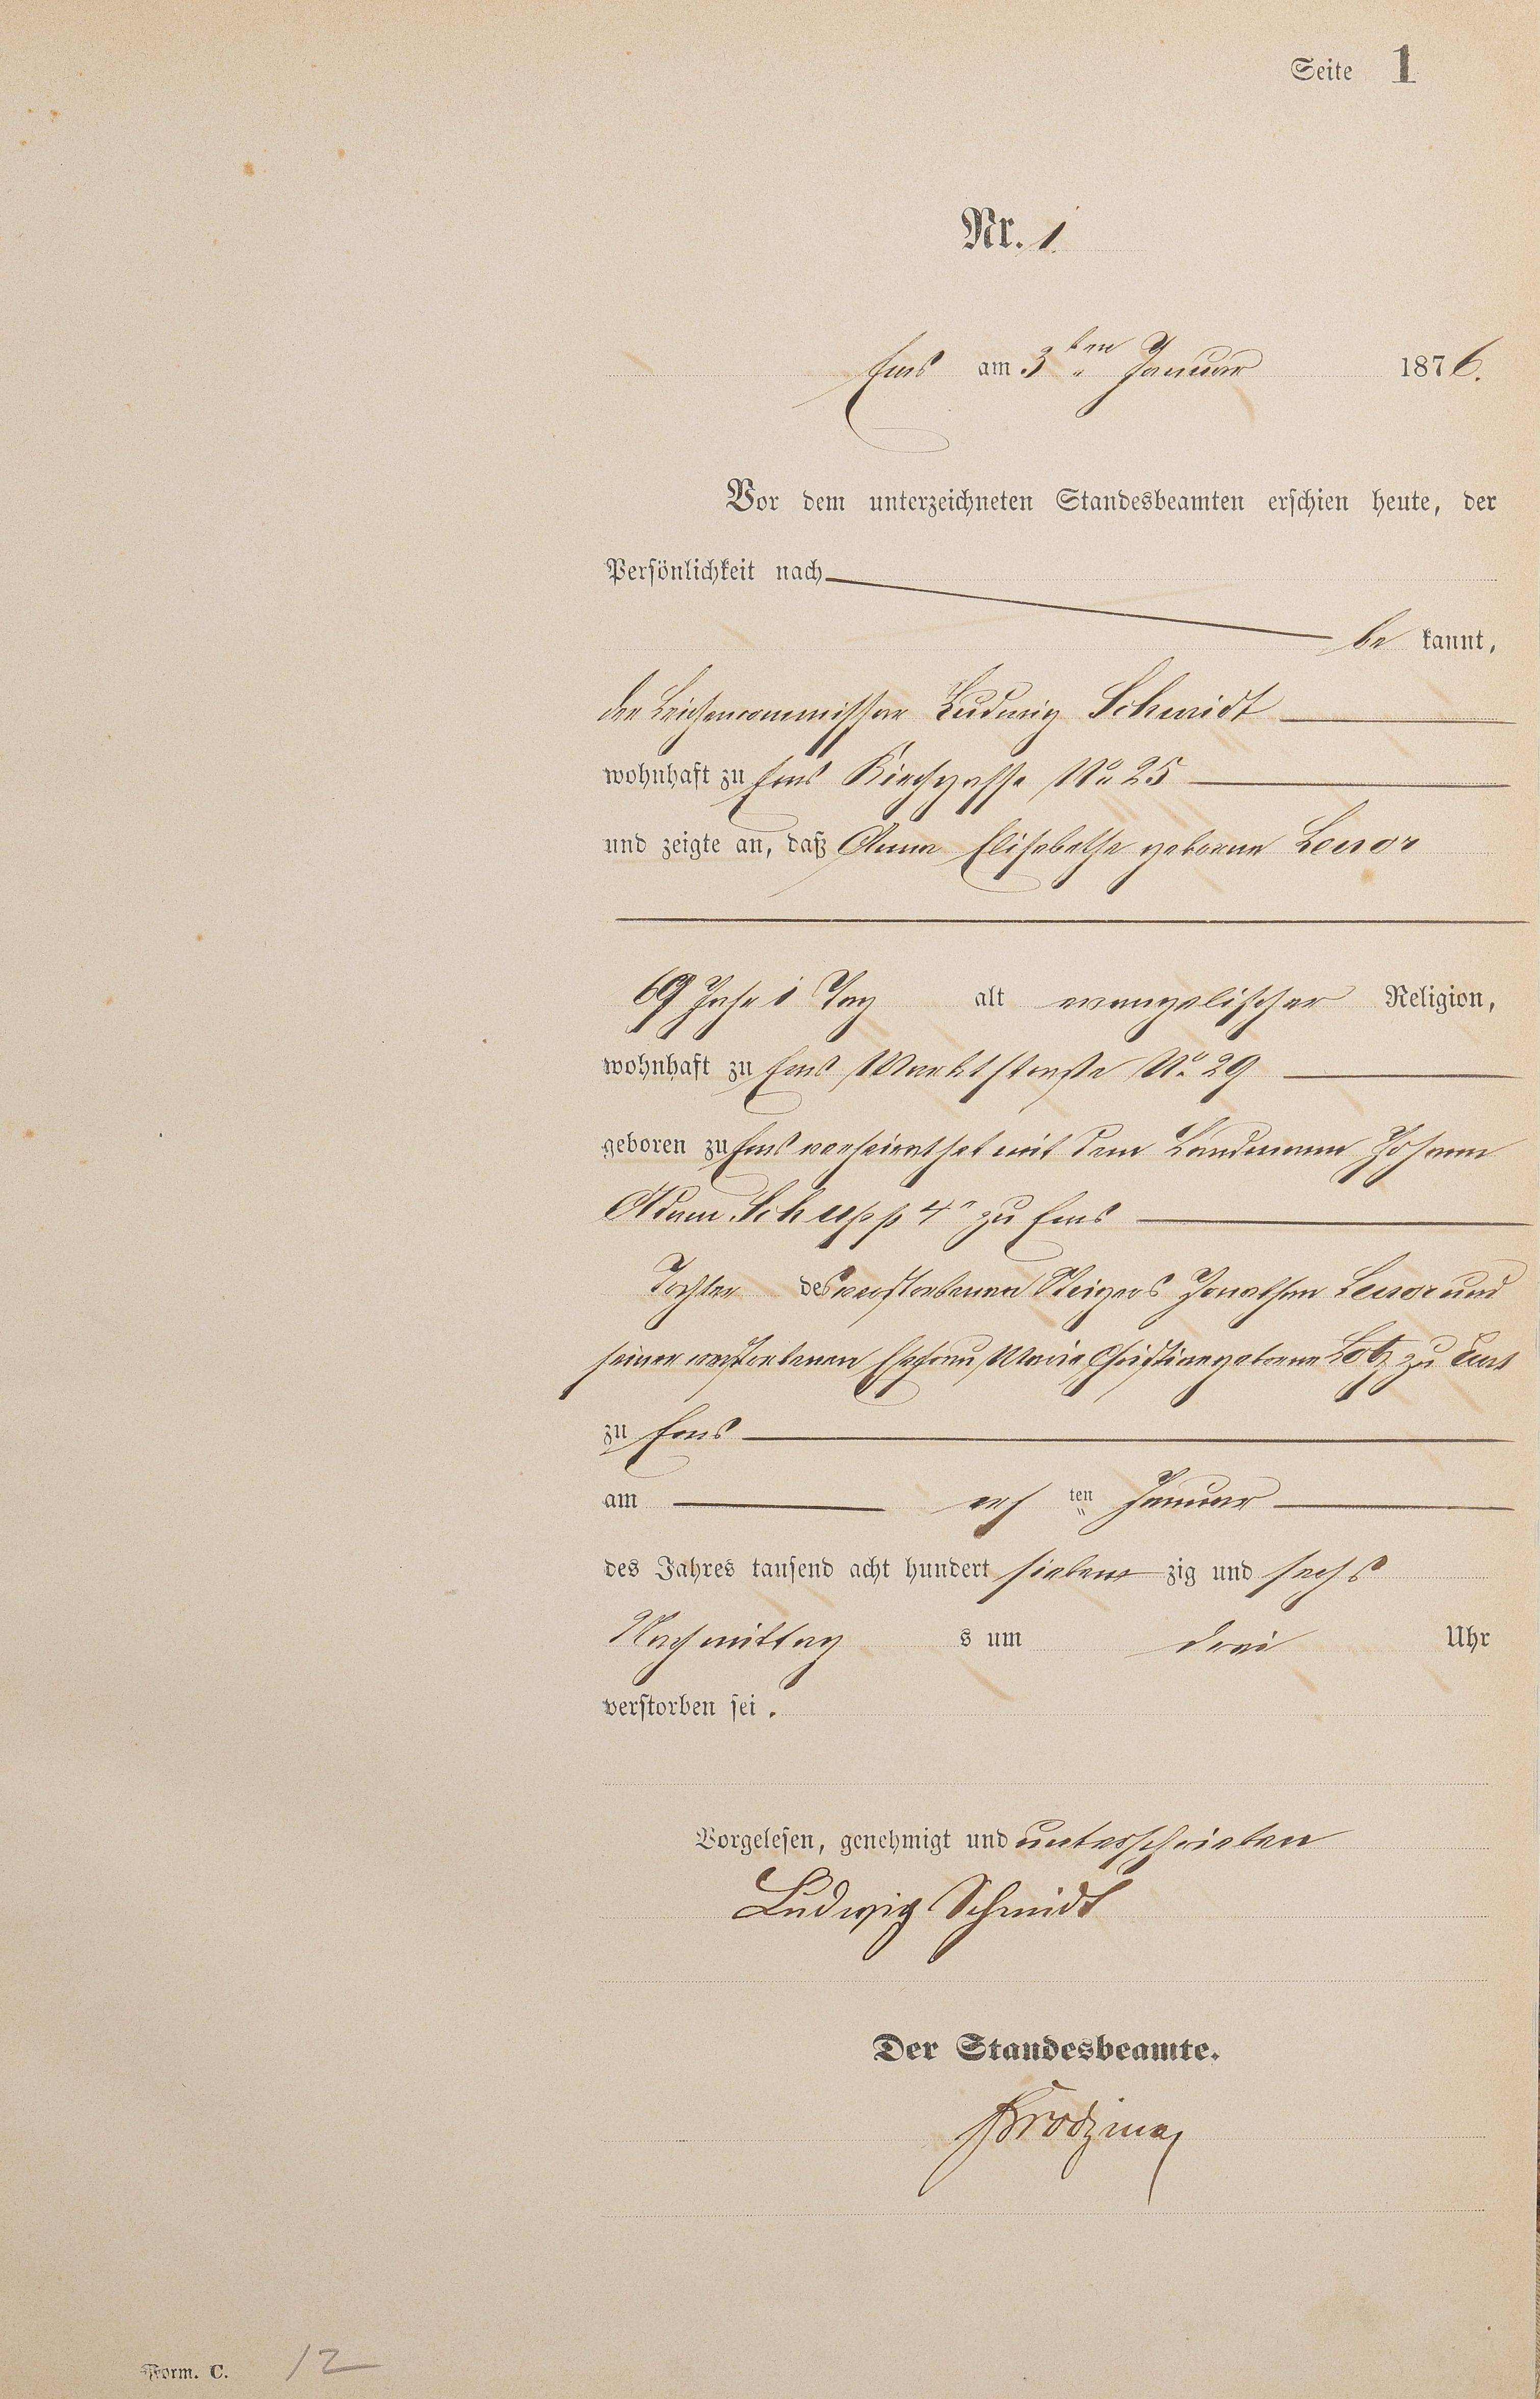 Seite 1
Nr. 1.
Ems am 3ten Januar 1876.
Vor dem unterzeichneten Standesbeamten erschien heute, der
Persönlichkeit nach
be kannt,
der Leichencommissar Ludwig Schmidt
wohnhaft zu Ems Kirchgasse No 25
und zeigte an, daß Anna Elisabethe geborene
69 Jahr 1 Tag alt evangelischer Religion,
wohnhaft zu Ems Marktstraße No 29
geboren zu Ems verheirathet mit dem Landmann Johann
Adam Schupp 4r zu Ems
Tochter des verstorbenen Steigers Jonathan und
seiner verstorbenen Ehefrau Marie Christine geborene Lotz zu
zu Ems
am ersten Januar
des Jahres tausend acht hundert siebenzig und sechs
Nachmittags um drei Uhr
verstorben sei.
Vorgelesen, genehmigt und unterschrieben
Ludwig Schmidt
Der Standesbeamte.
Form. C. 12